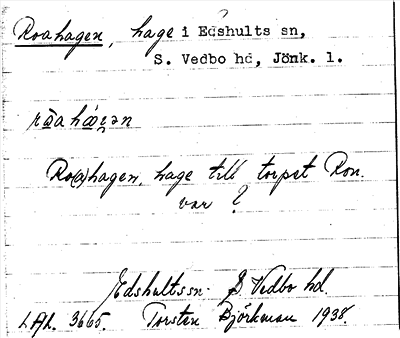 Roahagen, hage i Edshults sn,
S. Vedbo hd, Jönk. l.
Ro(a)hagen, hage till torpet Ron.
var?
Edshults sn. S. Vedbo hd.
3665. Torsten Björkman 1938.